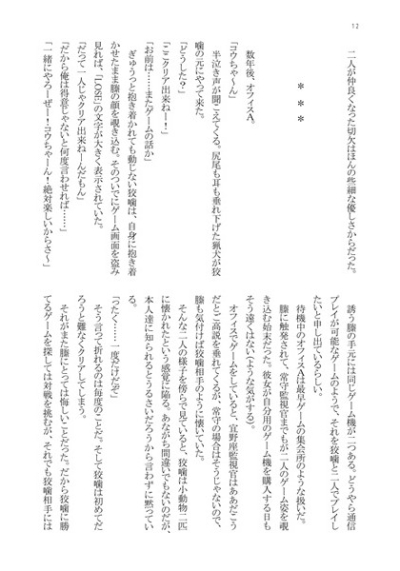 12
二人が仲良くなった切欠はほんの些細な優しさからだった。
＊＊＊
数年後、オフィスA。
「コウちゃ～ん」
半泣き声が聞こえてくる。尻尾も耳も垂れ下げた猟犬が狡
噛の元にやって来た。
「どうした？」
「ここクリア出来ねー！」
「お前は……またゲームの話か」
ぎゅうっと抱き着かれても動じない狡噛は、自身に抱き着
かせたまま縢の顔を覗き込む。そのついでにゲーム画面を盗み
見れば、「LOSE」の文字が大きく表示されていた。
「だって一人じゃクリア出来ねーんだもん」
「だから俺は得意じゃないと何度言わせれば……」
「一緒にやろーぜー！コウちゃーん！絶対楽しいからさ～」
誘う縢の手元には同じゲーム機が二つある。どうやら通信
プレイが可能なゲームのようで、それを狡噛と二人でプレイし
たいと申し出ているらしい。
待機中のオフィスAは最早ゲームの集会所のような扱いだ。
縢に触発されて、常守監視官までもが二人のゲーム姿を覗
き込む始末だった。彼女が自分用のゲーム機を購入する日も
そう遠くはない（ような気がする）。
オフィスでゲームをしていると、宜野座監視官はああだこう
だとご高説を垂れてくるが、常守の場合はそうじゃないので、
縢も気付けば狡噛相手のように懐いていた。
そんな二人の様子を傍らで見ていると、狡噛は小動物二匹
に懐かれたという感覚に陥る。あながち間違いでもないのだが、
本人達に知られるとうるさいだろうから言わずに黙ってい
る。
「ったく……一度だけだぞ」
そう言って折れるのは毎度のことだ。そして狡噛は初めてだ
ろうと難なくクリアしてしまう。
それがまた縢にとっては悔しいことだった。だから狡噛に勝
てるゲームを探しては対戦を挑むが、それでも狡噛相手には